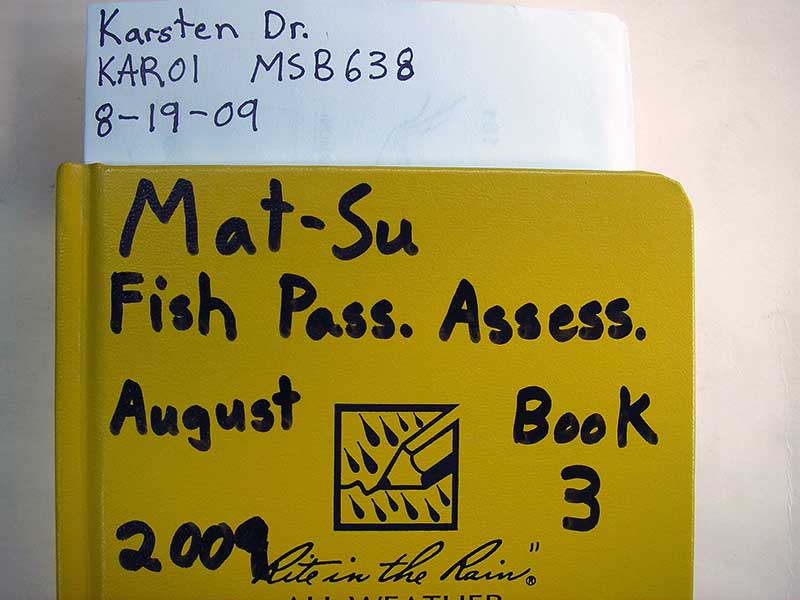 Karsten Dr.
KAR01 MSB638
8-19-09
Mat-Su
Fish Pass. Assess.
August Book
3
2009
Rite in the Rain"®
ALL-WEATHER